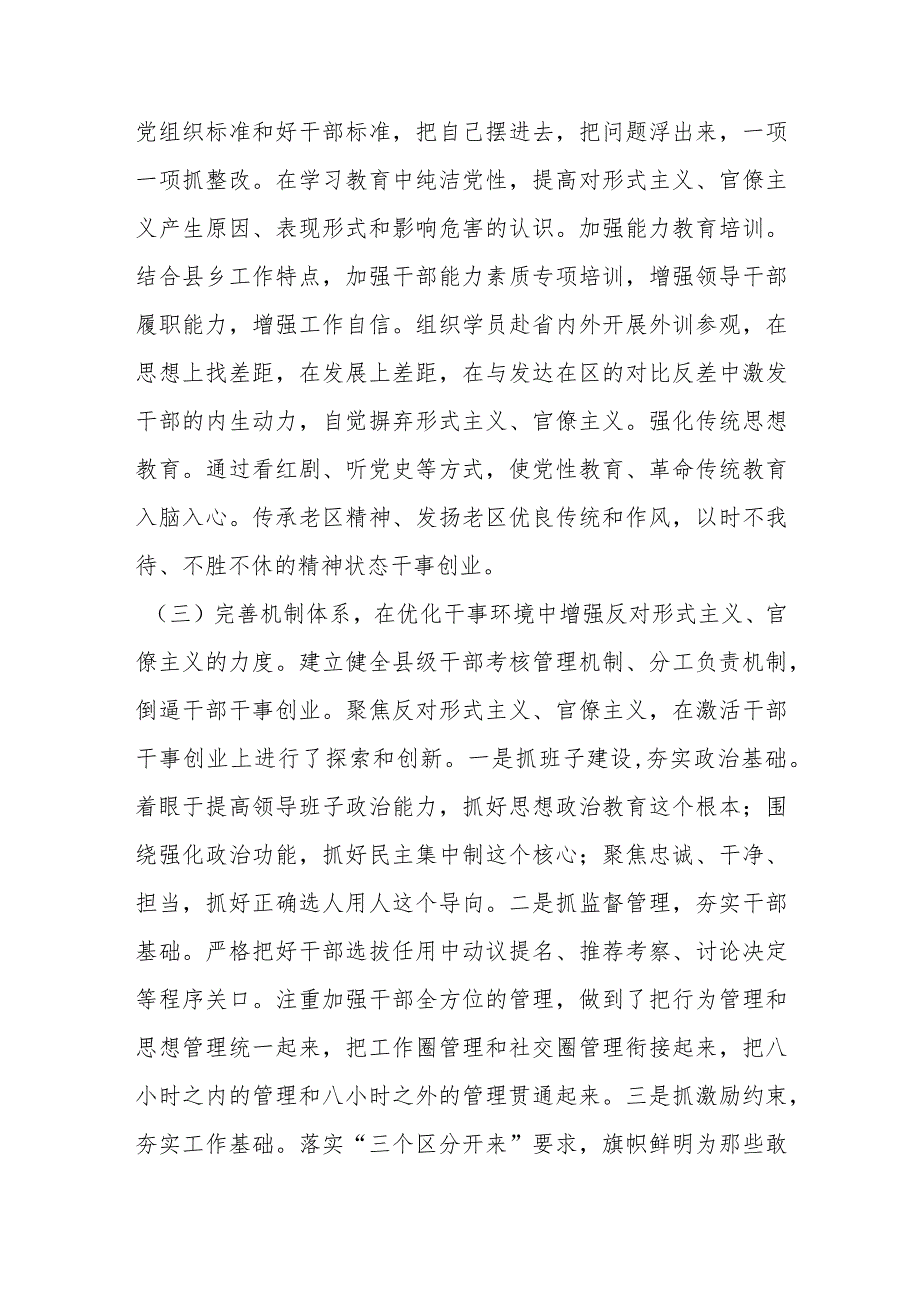 党组织标准和好干部标准，把自己摆进去，把问题浮出来，一项
一项抓整改。在学习教育中纯洁党性，提高对形式主义、官僚主
义产生原因、表现形式和影响危害的认识。加强能力教育培训。
结合县乡工作特点，加强干部能力素质专项培训，增强领导干部
履职能力，增强工作自信。组织学员赴省内外开展外训参观，在
思想上找差距，在发展上差距，在与发达在区的对比反差中激发
干部的内生动力，自觉摒弃形式主义、官僚主义。强化传统思想
教育。通过看红剧、听党史等方式，使党性教育、革命传统教育
入脑入心。传承老区精神、发扬老区优良传统和作风，以时不我
待、不胜不休的精神状态干事创业。
（三）完善机制体系，在优化干事环境中增强反对形式主义、官
僚主义的力度。建立健全县级干部考核管理机制、分工负责机制，
倒逼干部干事创业。聚焦反对形式主义、官僚主义，在激活干部
干事创业上进行了探索和创新。一是抓班子建设,夯实政治基础。
着眼于提高领导班子政治能力，抓好思想政治教育这个根本；围
绕强化政治功能，抓好民主集中制这个核心；聚焦忠诚、干净、
担当，抓好正确选人用人这个导向。二是抓监督管理，夯实干部
基础。严格把好干部选拔任用中动议提名、推荐考察、讨论决定
等程序关口。注重加强干部全方位的管理，做到了把行为管理和
思想管理统一起来，把工作圈管理和社交圈管理衔接起来，把八
小时之内的管理和八小时之外的管理贯通起来。三是抓激励约束，
夯实工作基础。落实“三个区分开来”要求，旗帜鲜明为那些敢